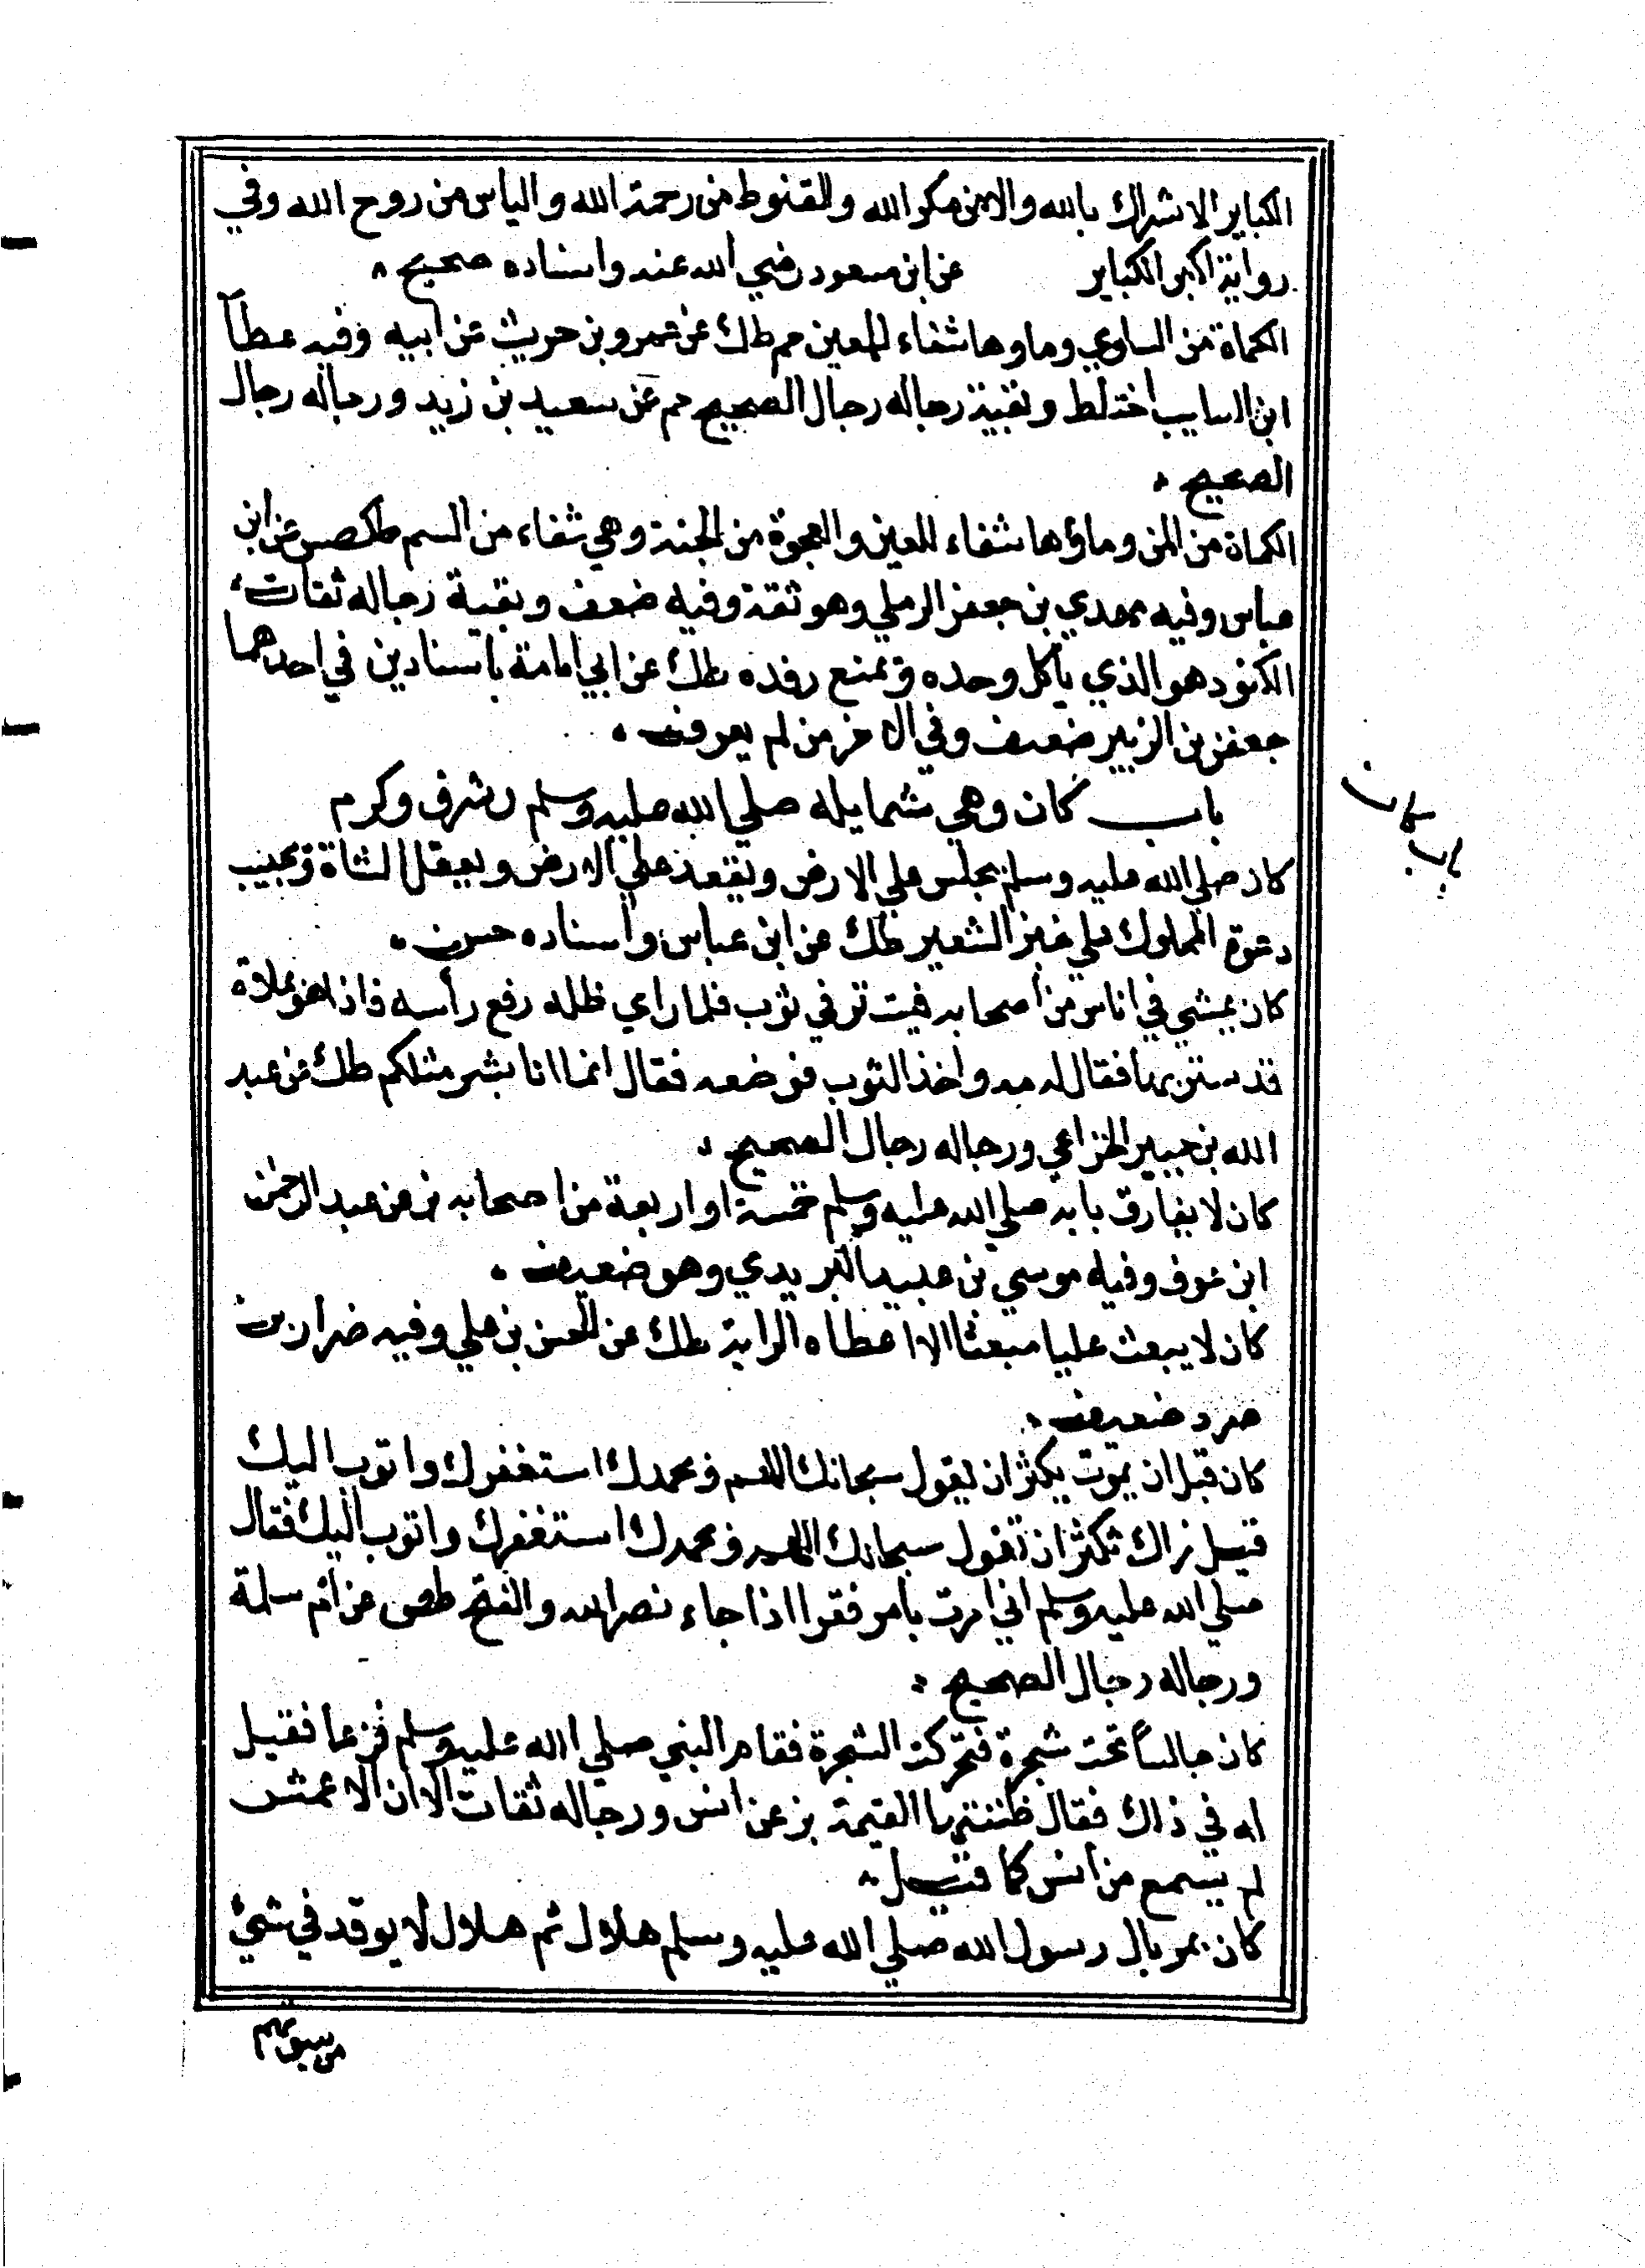 الكباير الاشراك بالله والامن مكر الله والقنوط من رحمة الله والياس من روح الله وفي
رواية اكبر الكباير عن ابن مسعود رضي الله عنه واسناده صحيح
الكماة من السلوي وماوها شفاء للعين حم طك عن عمرو بن حريث عن ابيه وفيه عطآ
ابن السايب اختلط وبقية رجاله رجال الصحيح حم عن سعيد بن زيد ورجاله رجال
الصحيح
الكماة من المن وماؤها شفاء للعين والعجوة من الجنة وهي شفاء من السم طكصس عن ابن
عباس وفيه مهدي بن جعفر الرملي وهو ثقة وفيه ضعف وبقية رجاله ثقات
الكنود هو الذي ياكل وحده ويمنع رفده طك عن ابي امامة باسنادين في احدهما
جعفر بن الزبير ضعيف وفي الاخر من لم يعرف
باب كان وهي شمايله صلي الله عليه وسلم وشرف وكرم
باب كان
كان صلي الله عليه وسلم يجلس علي الارض ويقعد علي الارض ويعقل الشاة ويجيب
دعوة المملوك علي خبز الشعير طك عن ابن عباس واسناده حسن
كان يمشي في اناس من اصحابه فيتستر في ثوب فلما راي ظله رفع رأسه فاذا هو بملاة
قد ستر بها فقال له مه واخذ الثوب فوضعه فقال انما انا بشر مثلكم طك عن عبد
الله بن جبير الخزاعي ورجاله رجال الصحيح
كان لا يفارق بابه صلي الله عليه وسلم خمسة او اربعة من اصحابه بز عن عبد الرحمن
ابن عوف وفيه موسي بن عبيدة البريدي وهو ضعيف
كان لا يبعث عليا مبعثا الا اعطاه الراية طك عن الحسن بن علي وفيه ضرار بن
صرد ضعيف
كان قبل ان يموت يكثر ان يقول سبحانك اللهم وبحمدك استغفرك واتوب اليك
قيل نراك تكثر ان تقول سبحانك اللهم وبحمدك استغفرك واتوب اليك فقال
صلي الله عليه وسلم اني امرت بامر فقرا اذا جاء نصر الله والفتح طص عن ام سلمة
ورجاله رجال الصحيح
كان جالسا تحت شجرة فتحركت الشجرة فقام النبي صلي الله عليه وسلم فزعا فقيل
له في ذلك فقال ظننتها القيمة بز عن انس ورجاله ثقات الا ان الاعمش
لم يسمع من أنس كما قيل
كان يمر بال رسول الله صلي الله عليه وسلم هلال ثم هلال لا يوقد في شيئ
من بيوتهم